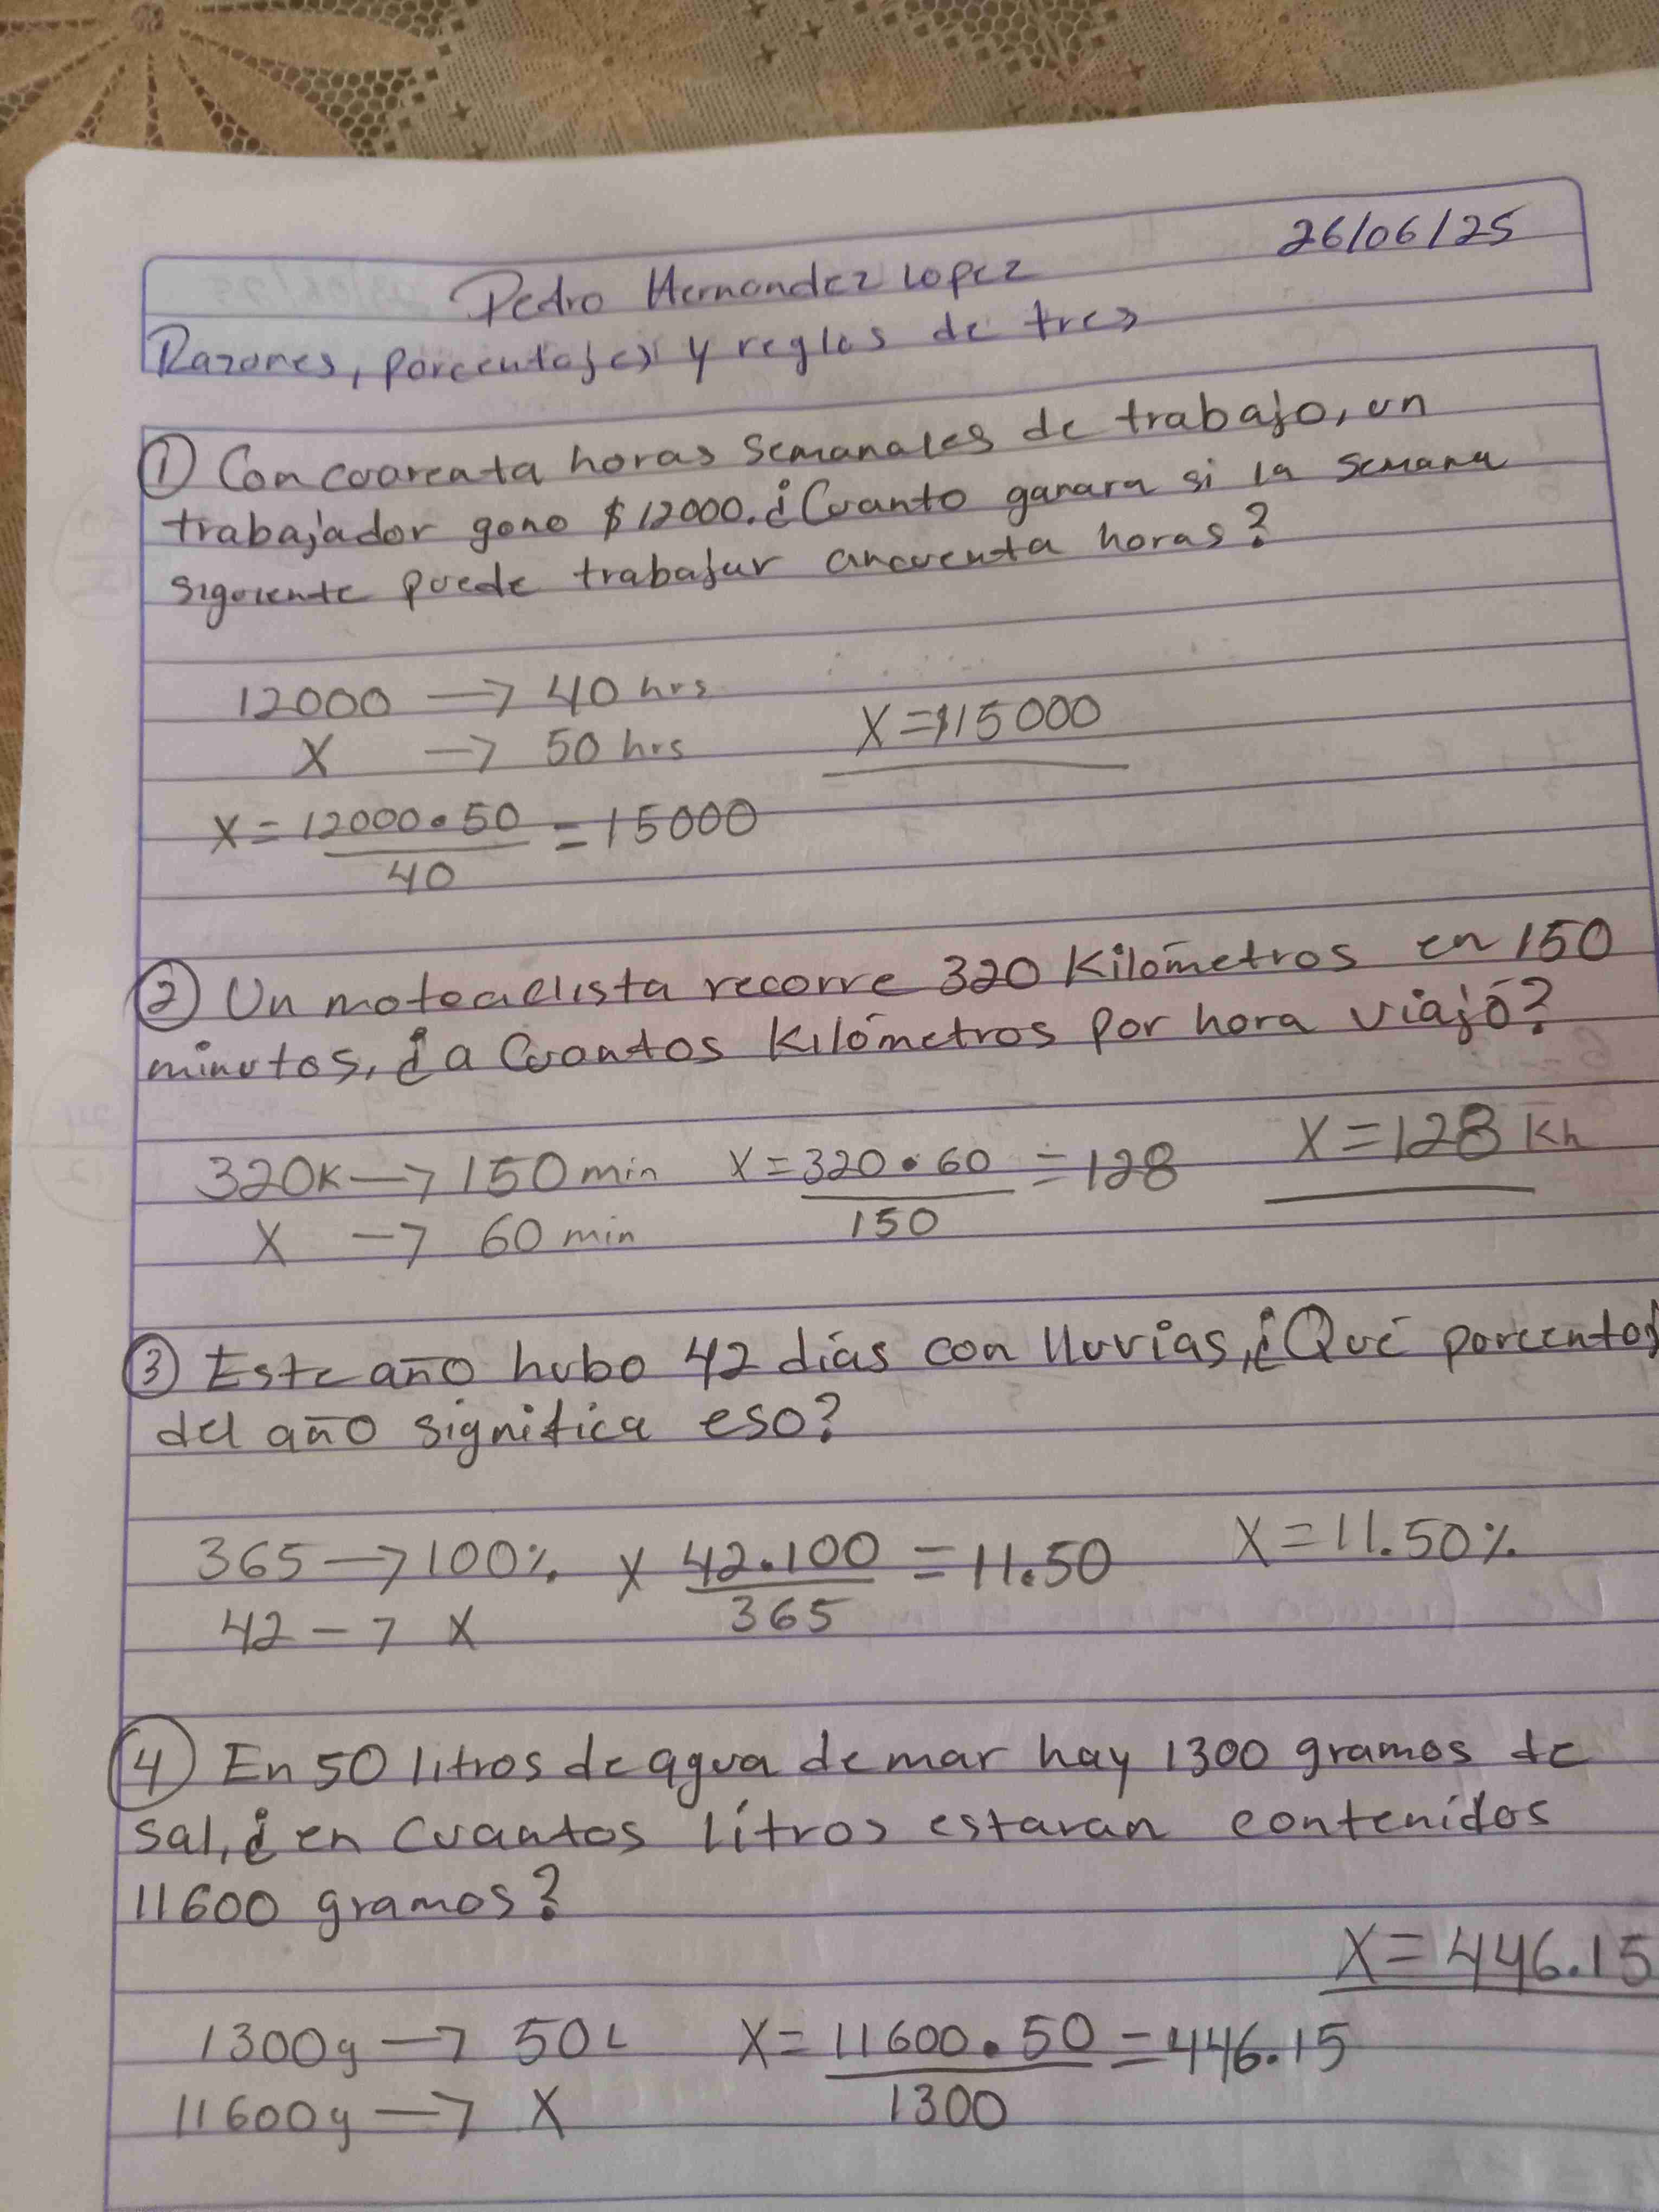 26/06/25
Pedro Hernandez Lopez
Razones, porcentajes y reglas de tres
① Con cuarenta horas semanales de trabajo, un
trabajador gano $12000. ¿Cuanto ganara si la semana
siguiente puede trabajar cincuenta horas?
12000 → 40 hrs
X → 50 hrs
X = $15000
X = 12000 • 50 / 40 = 15000
② Un motociclista recorre 320 Kilómetros en 150
minutos, ¿a Cuantos Kilómetros por hora viajó?
320K → 150 min X = 320 • 60 / 150 = 128 X = 128 Kh
X → 60 min
③ Este año hubo 42 días con lluvias, ¿Qué porcentaj
del año significa eso?
365 → 100% X 42.100 / 365 = 11.50 X = 11.50%
42 → X
④ En 50 litros de agua de mar hay 1300 gramos de
sal, ¿en Cuantos litros estaran contenidos
11600 gramos?
X = 446.15
1300g → 50L X = 11600 • 50 / 1300 = 446.15
11600g → X